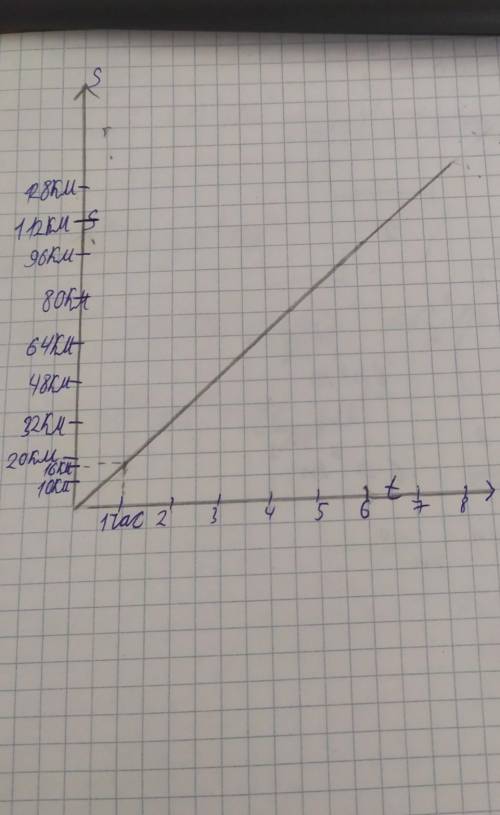 S
128км
112км S
96км
80км
64км
48км
32км
20км
16км
10км
t
1 час 2 3 4 5 6 7 8